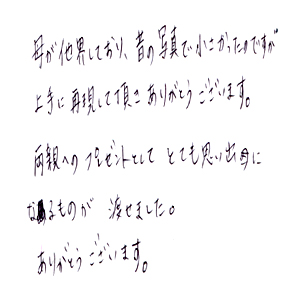 母が他界しており、昔の写真で小さかったのですが
上手に再現して頂きありがとうございます。
両親へのプレゼントとして とても思い出に
なるものが 渡せました。
ありがとうございます。